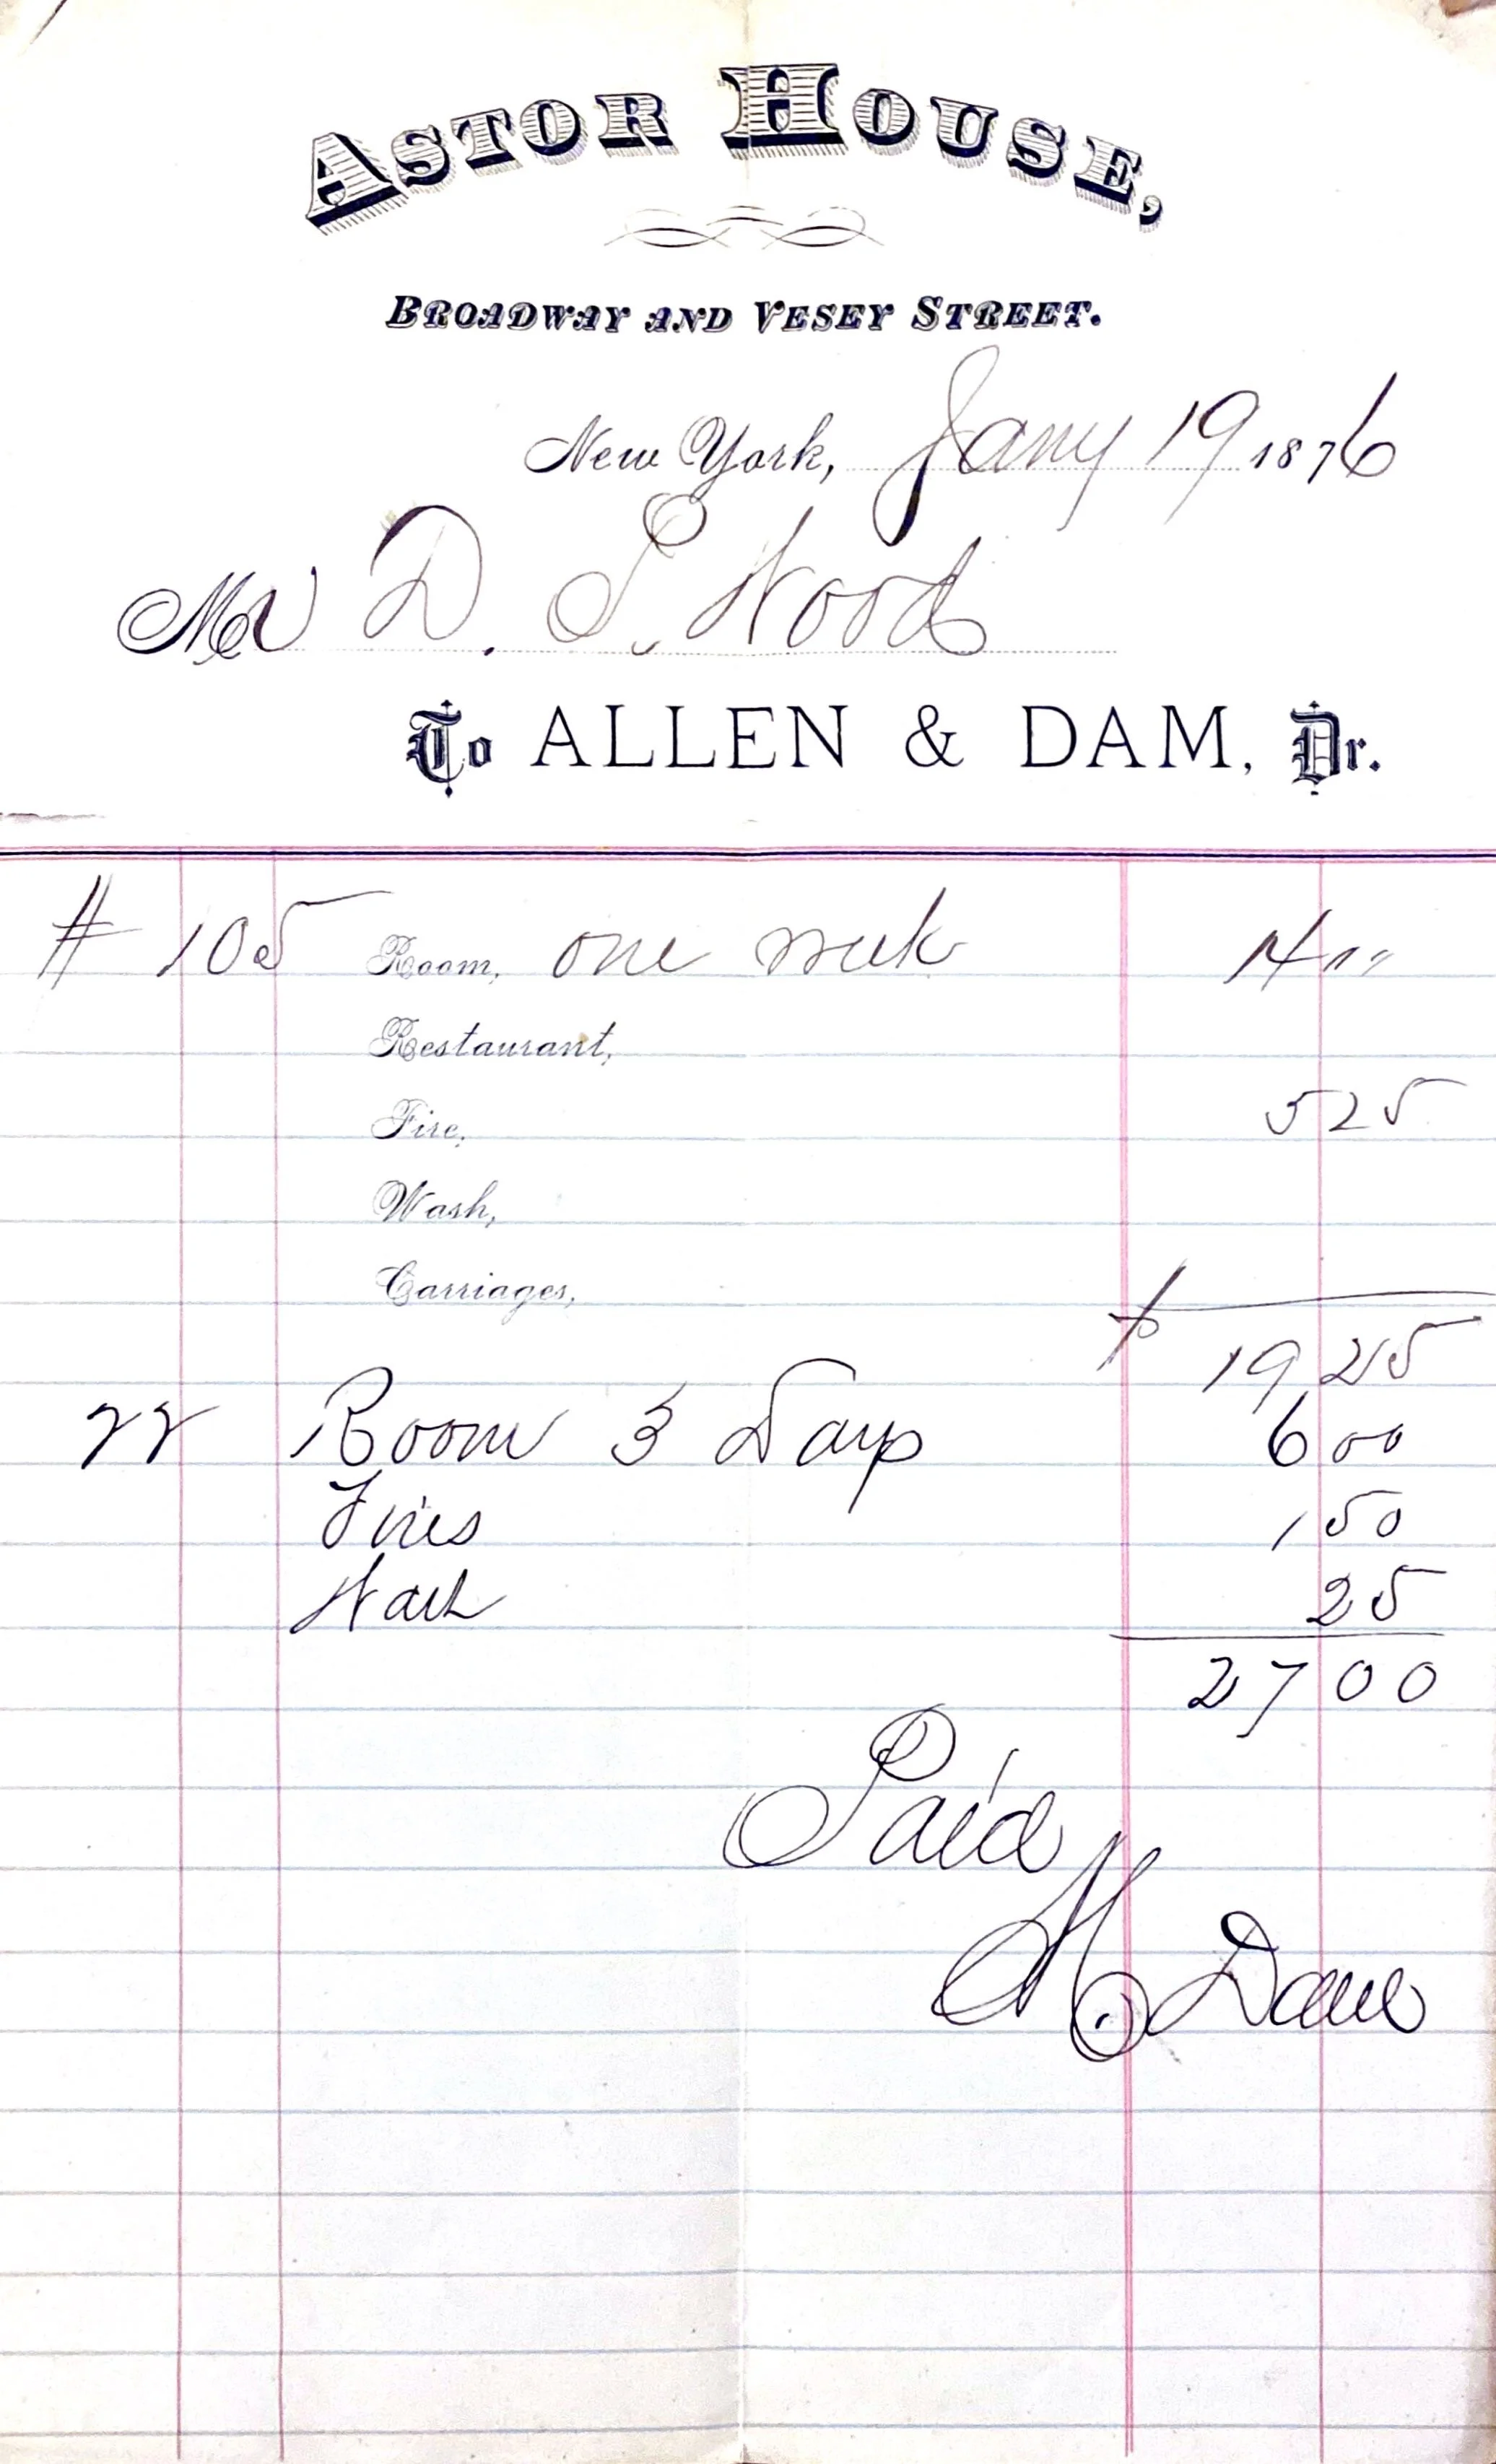 ASTOR HOUSE,
BROADWAY AND VESEY STREET.
New York, Jany 19 1876
Mr D. S. Wood
To ALLEN & DAM, Dr.
# 105 Room, one week 14 00
Restaurant,
Fire, 5 25
Wash,
Carriages,
$ 19 25
22 Room 3 Days 6 00
Fires 1 50
Wash 25
27 00
Paid
Dam